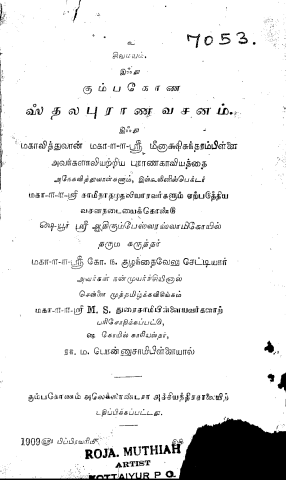 7053.
உ
சிவமயம்.
இஃது
கும்பகோண
ஸ்தலபுராணவசனம்.
இஃது
மகாலித்துவான் மகா-ா-ா-ஸ்ரீ மீனாக்ஷிசுந்தரம்பிள்ளை
அவர்களாலியற்றிய புராணகாவியத்தை
மகா-ா-ா-ஸ்ரீ சாமிநாதமுதலியாரவர்களால் ஏற்படுத்திய
வசனநடையைக்கொண்டு
ஷெயூர் ஸ்ரீ ஆதிகும்பேஸ்வரஸ்வாமிகோயில்
தரும கருத்தர்
மகா-ா-ா-ஸ்ரீ கோ. கு. குழந்தைவேலு செட்டியார்
அவர்கள் நன்முயற்சியினால்
சென்னை முத்தமிழ்க்கவிங்கம்
மகா-ா-ா-ஸ்ரீ M. S. துரைசாமிபிள்ளையவர்களாற்
பரிசோதிக்கப்பட்டு,
ம. பொண்ணுசாமிபிள்ளையால்
கும்பகோணம் அலெக்ஸாண்டரா அச்சியந்திரசாலையிற்
பதிப்பிக்கப்பட்டது.
1909 ௵ பிப்ரவரி
ROJA. MUTHIAH
ARTIST
KOTTAIYUR P O